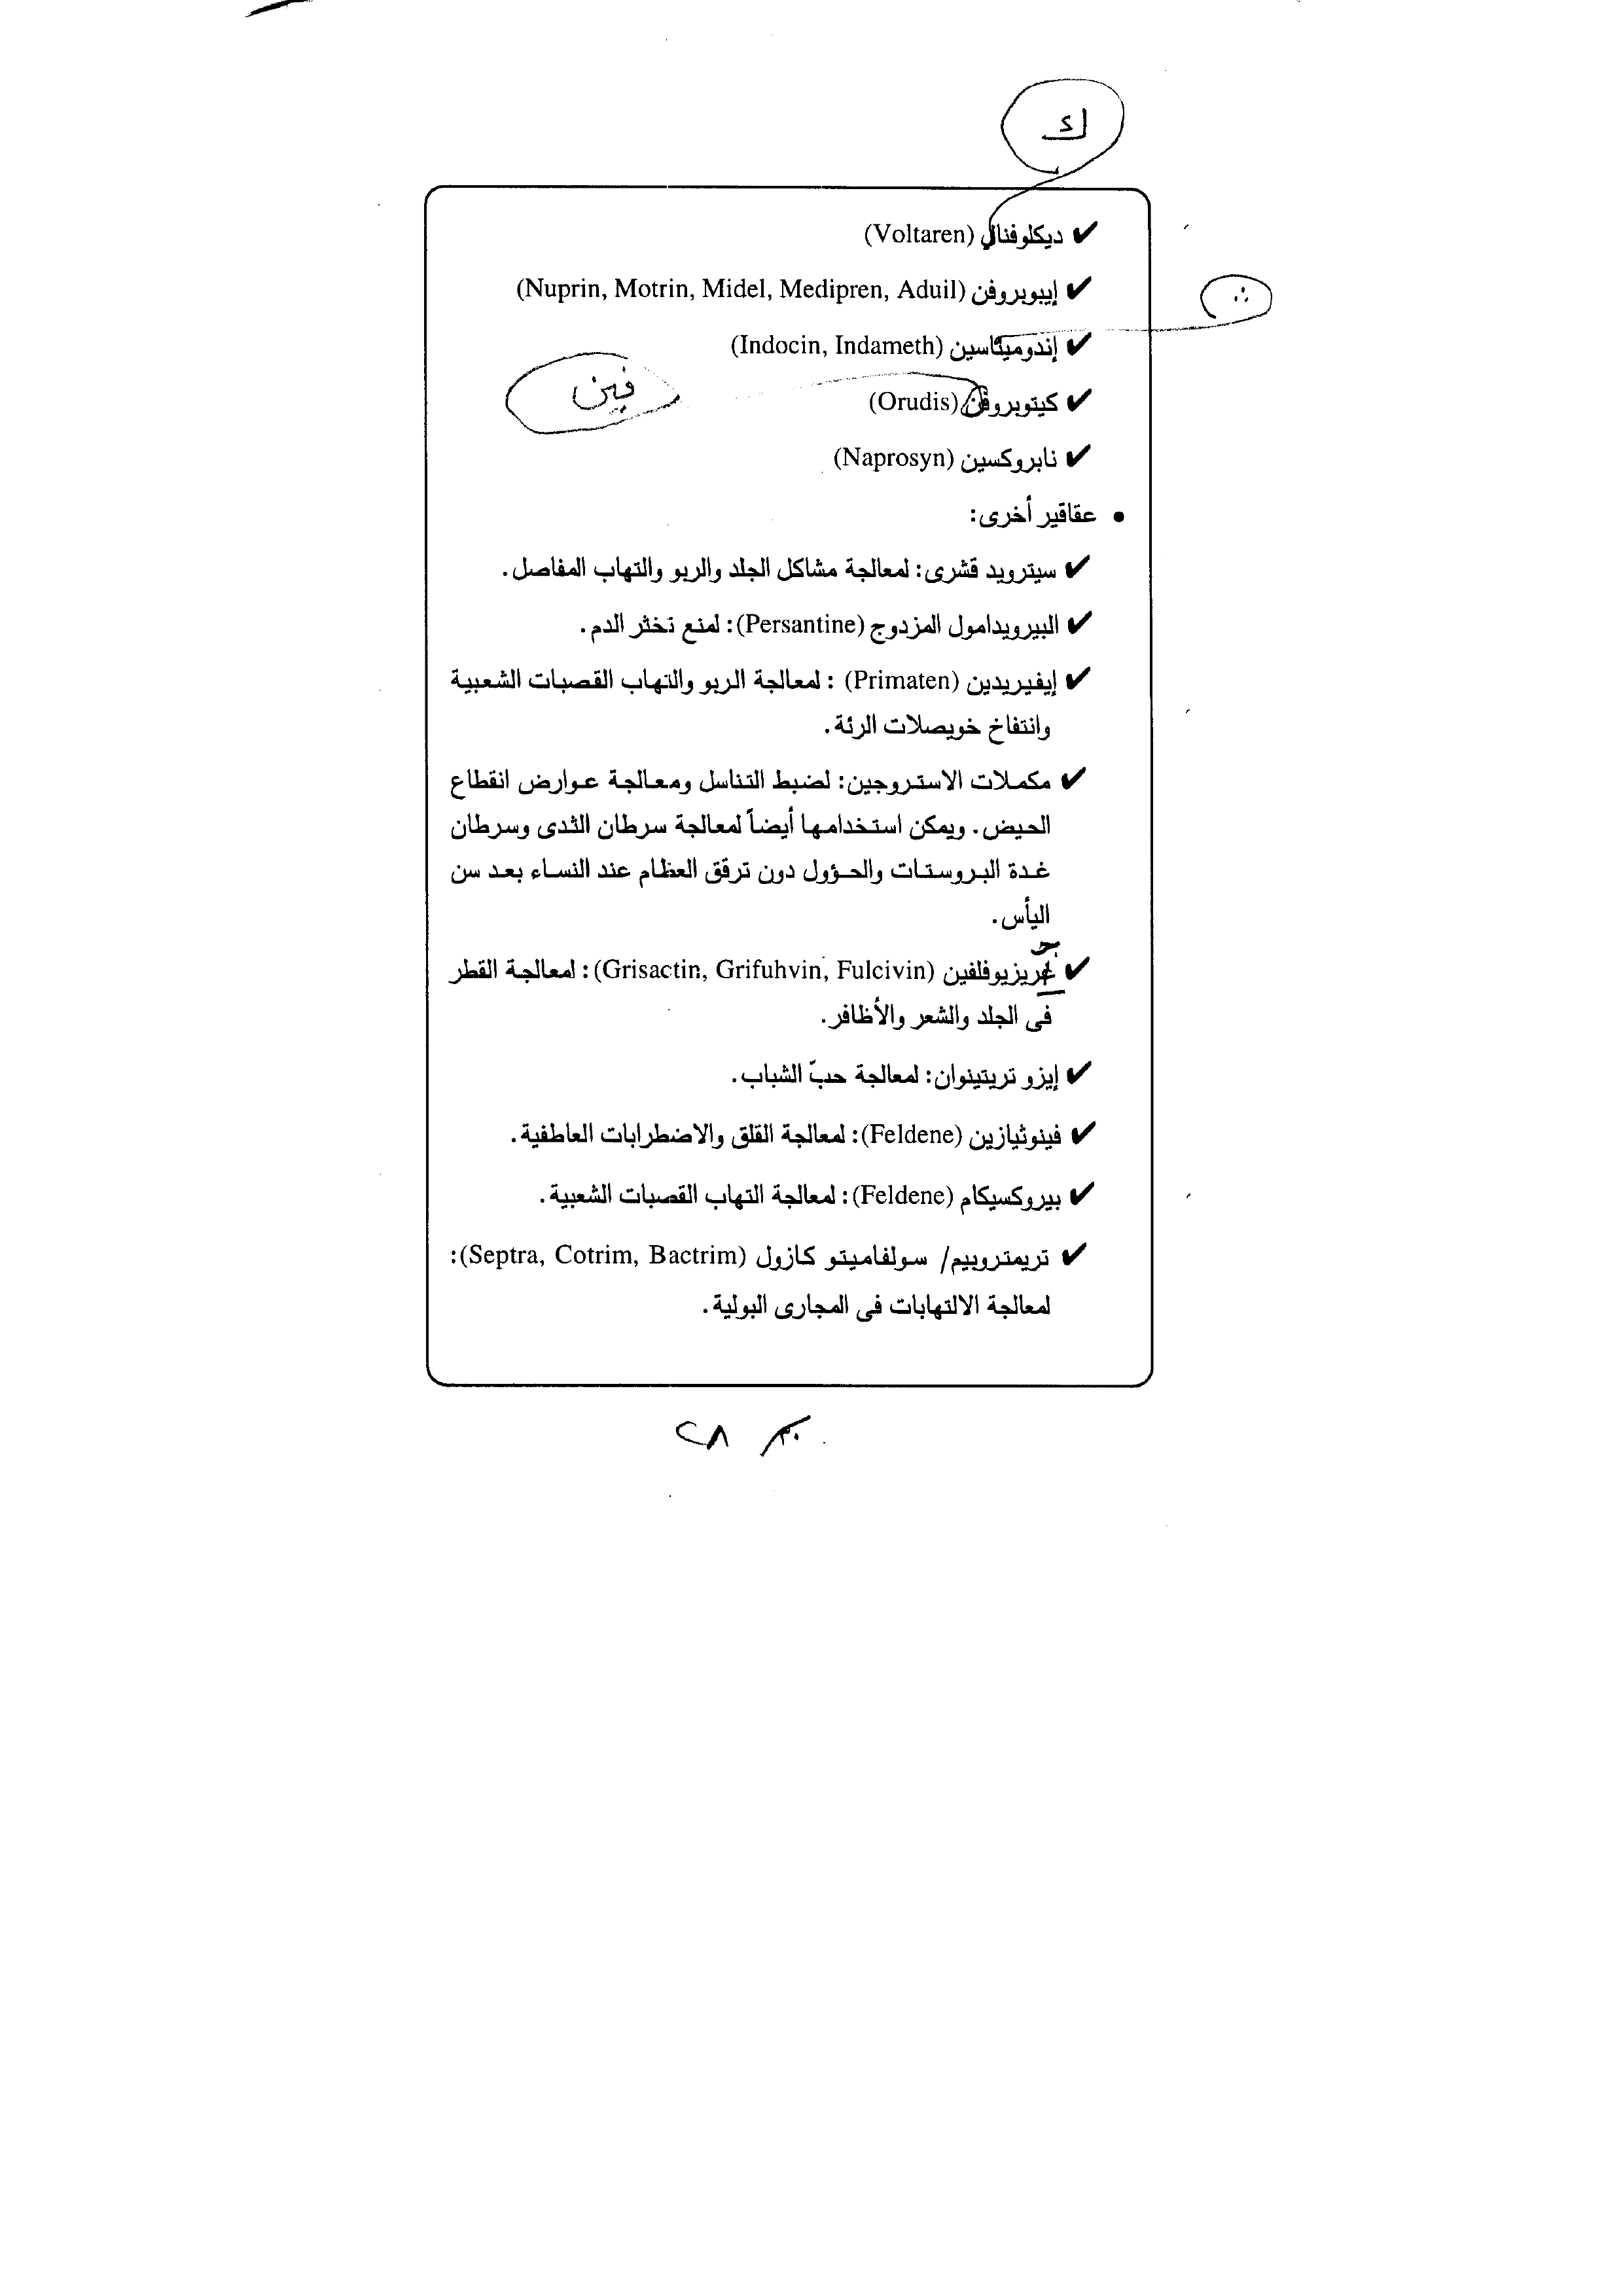 ك
✔ ديكلوفنال (Voltaren)
✔ إيبوبروفن (Nuprin, Motrin, Midel, Medipren, Aduil)
✔ إندوميتاسين (Indocin, Indameth)
✔ كيتوبروفن (Orudis)
فين
✔ نابروكسين (Naprosyn)
• عقاقير أخرى:
✔ سيترويد قشرى: لمعالجة مشاكل الجلد والربو والتهاب المفاصل.
✔ البيرويدامول المزدوج (Persantine): لمنع تخثر الدم.
✔ إيفيريدين (Primaten) : لمعالجة الربو والتهاب القصبات الشعبية
وانتفاخ خويصلات الرئة.
✔ مكملات الاستروجين: لضبط التناسل ومعالجة عوارض انقطاع
الحيض. ويمكن استخدامها أيضاً لمعالجة سرطان الثدى وسرطان
غدة البروستات والحؤول دون ترقق العظام عند النساء بعد سن
اليأس.
✔ غريزيوفلفين (Grisactin, Grifuhvin, Fulcivin): لمعالجة القطر
فى الجلد والشعر والأظافر.
✔ إيزو تريتينوان: لمعالجة حبّ الشباب.
✔ فينوثيازين (Feldene): لمعالجة القلق والاضطرابات العاطفية.
✔ بيروكسيكام (Feldene): لمعالجة التهاب القصبات الشعبية.
✔ تريمتروبيم/ سولفاميتو كازول (Septra, Cotrim, Bactrim):
لمعالجة الالتهابات فى المجارى البولية.